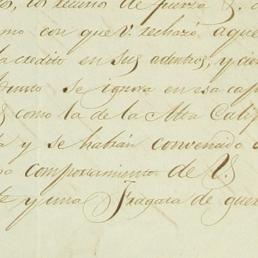 los recursos de fuerza
con que V. rechazó aque
la credito en sus adentros, y cie
se ignora en esa cap
como la de la Alta Calif
y se habían convenido
comportamiento de V.
te y una Fragata de guer